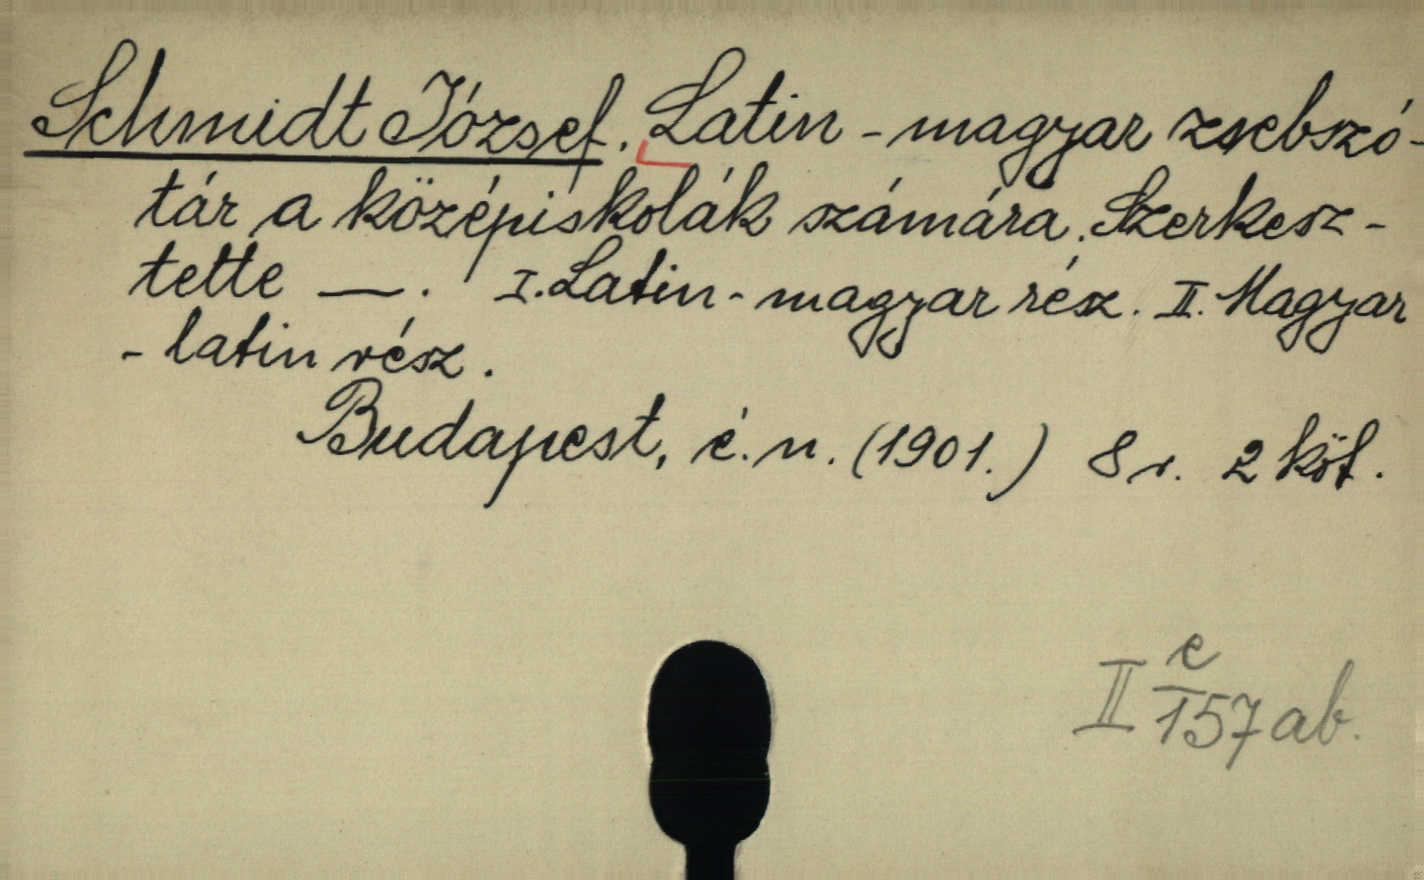 Schmidt József. Latin-magyar zsebszó-
tár a középiskolák számára. Szerkesz-
tette —. I. Latin-magyar rész. II. Magyar
-latin rész.
Budapest, é. n. (1901.) 8 r. 2 köt.
e
II 157 ab.